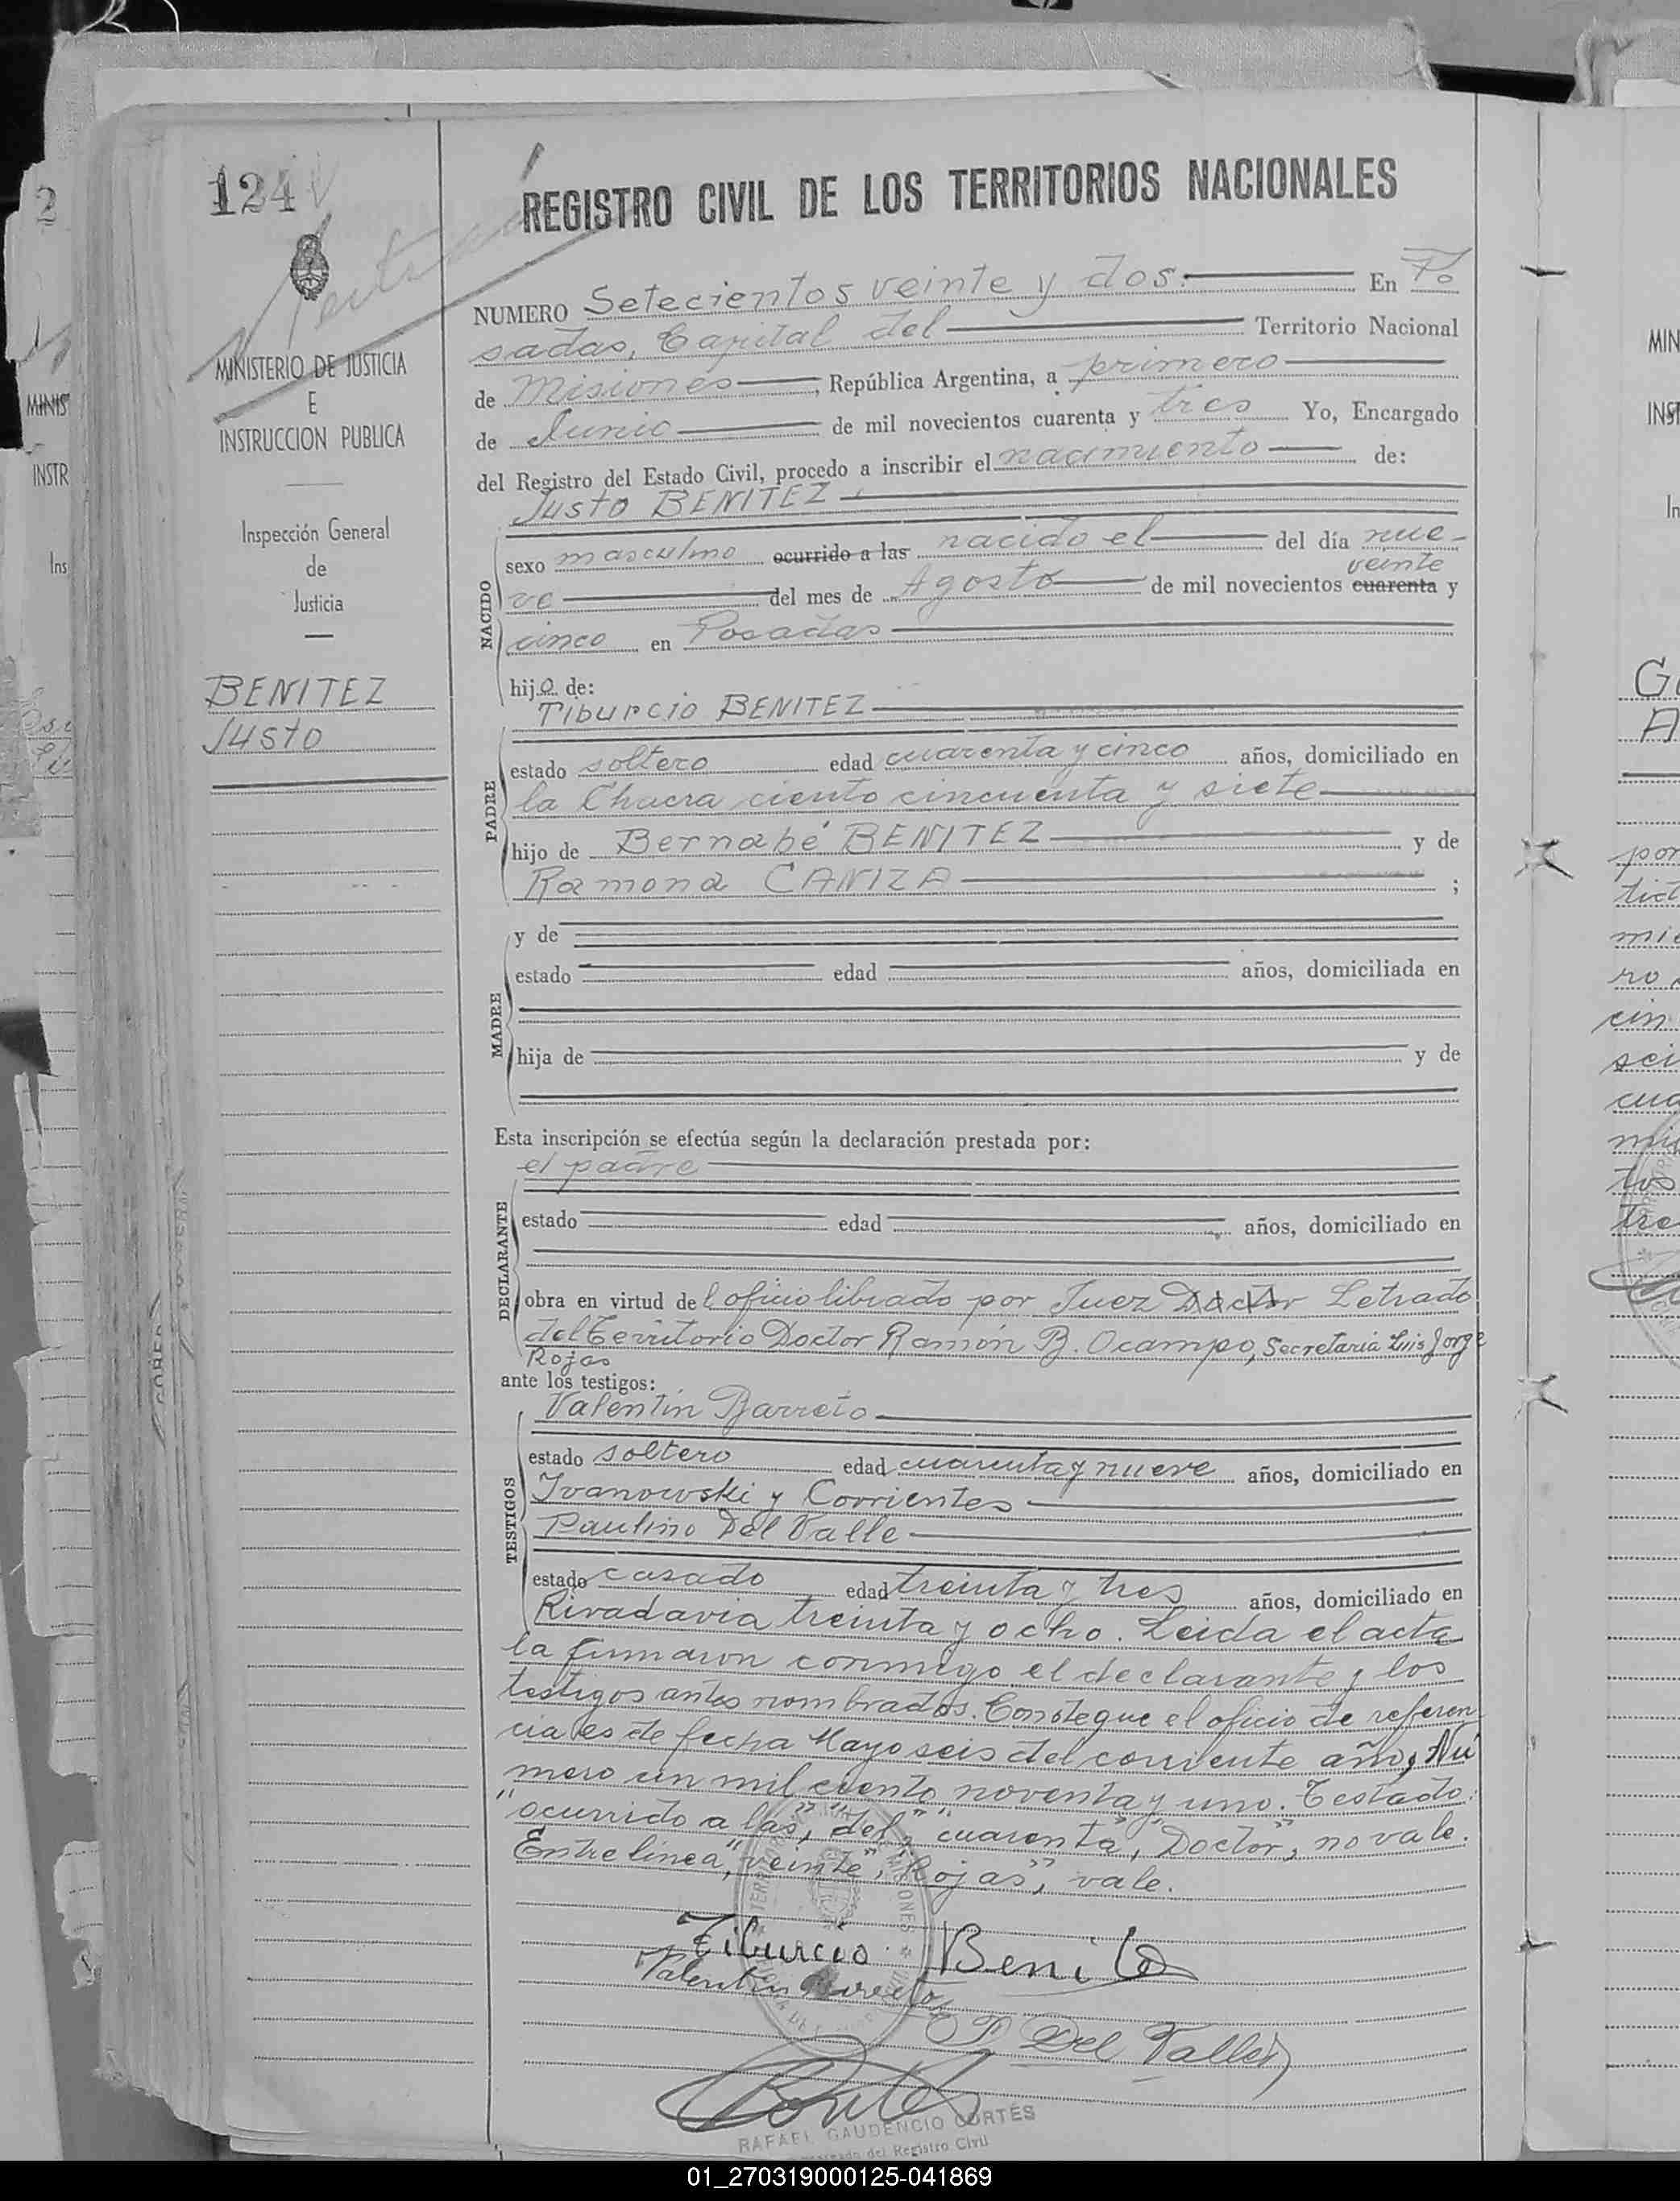 124
REGISTRO CIVIL DE LOS TERRITORIOS NACIONALES
NUMERO Setecientos veinte y dos. En Po
sadas, Capital del Territorio Nacional
de Misiones, República Argentina, a primero
de Junio de mil novecientos cuarenta y tres Yo, Encargado
del Registro del Estado Civil, procedo a inscribir el nacimiento de:
Justo BENITEZ
sexo masculino ocurrido a las nacido el del día nue-
veinte
ve del mes de Agosto de mil novecientos cuarenta y
cinco en Posadas
NACIDO
hijo de:
Tiburcio BENITEZ
estado soltero edad cuarenta y cinco años, domiciliado en
la Chacra ciento cincuenta y siete
PADRE
hijo de Bernabé BENITEZ y de
Ramona CANIZA ;
y de
estado edad años, domiciliada en
MADRE
hija de y de
Esta inscripción se efectúa según la declaración prestada por:
el padre
estado edad años, domiciliado en
DECLARANTE
obra en virtud del oficio librado por Juez Doctor Letrado
del Territorio Doctor Ramón B. Ocampo, Secretaría Luis Jorge
Rojas
ante los testigos:
Valentín Barreto
estado soltero edad cuarenta y nueve años, domiciliado en
Ivanowski y Corrientes
TESTIGOS
Paulino Del Valle
estado casado edad treinta y tres años, domiciliado en
Rivadavia treinta y ocho. Leida el acta
la firmaron conmigo el declarante y los
testigos antes nombrados. Conste que el oficio de referen
cia es de fecha Mayo seis del corriente año, Nú
mero un mil ciento noventa y uno. Testado:
"ocurrido a las", "del", "cuarenta", "Doctor", no vale.
Entre línea, "veinte", "Rojas", vale.
Tiburcio Benitez
Valentin Barreto
P Del Valle
RAFAEL GAUDENCIO CORTÉS
Encargado del Registro Civil
MINISTERIO DE JUSTICIA
E
INSTRUCCION PUBLICA
Inspección General
de
Justicia
BENITEZ
Justo
01_270319000125-041869